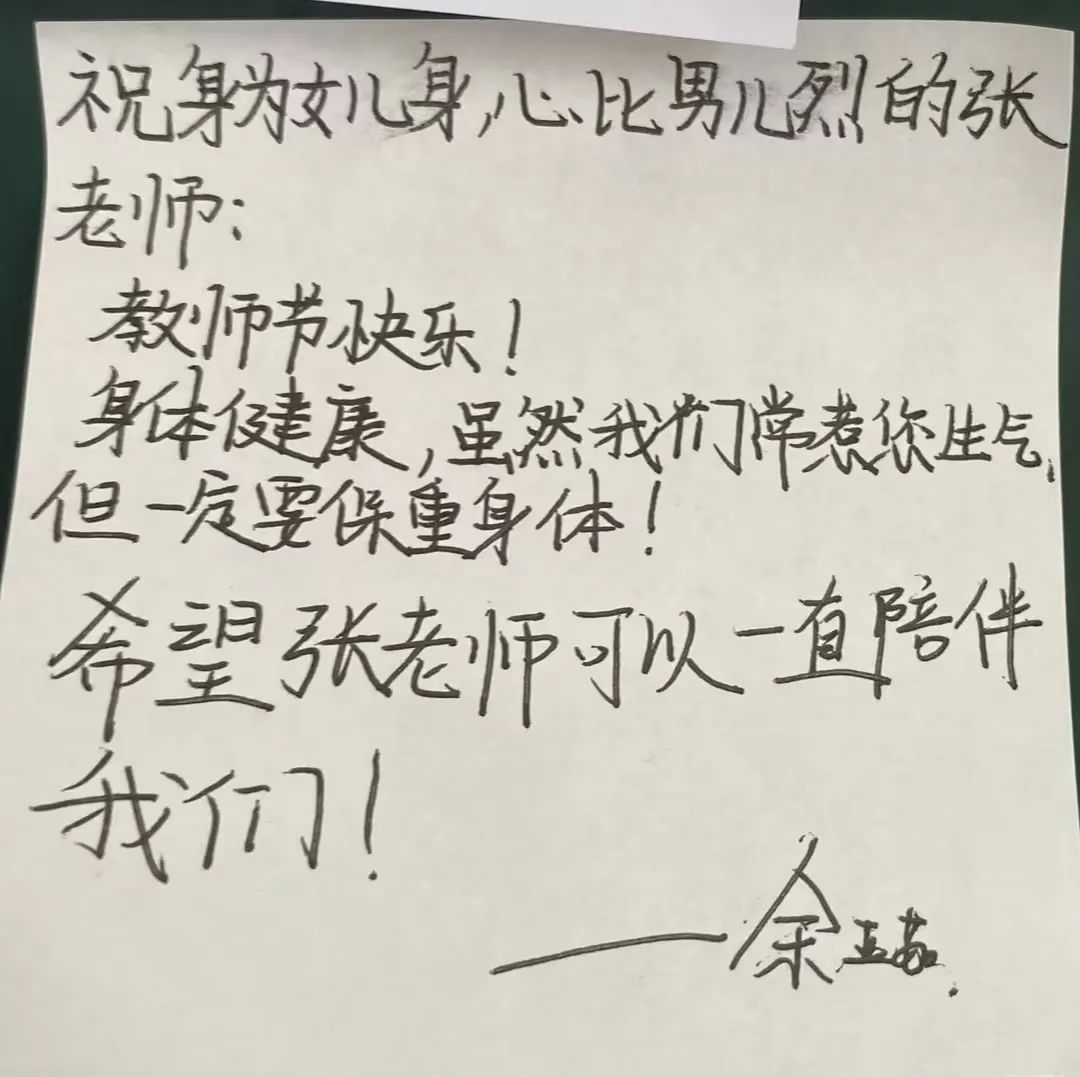 祝身为女儿身,心比男儿烈的张
老师:
教师节快乐!
身体健康,虽然我们常惹您生气,
但一定要保重身体!
希望张老师可以一直陪伴
我们!
——余